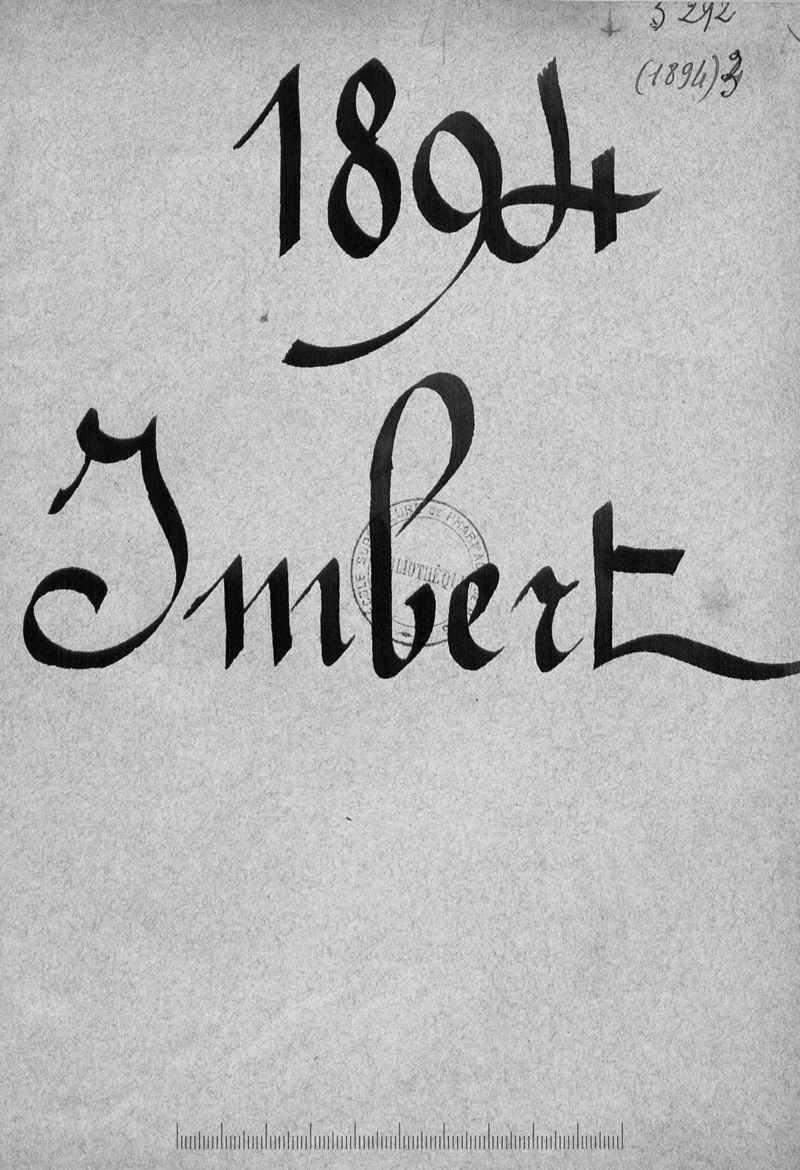 5 292
(1894) 3
1894
Imbert
ÉCOLE SUPÉRIEURE DE PHARMACIE
BIBLIOTHÈQUE